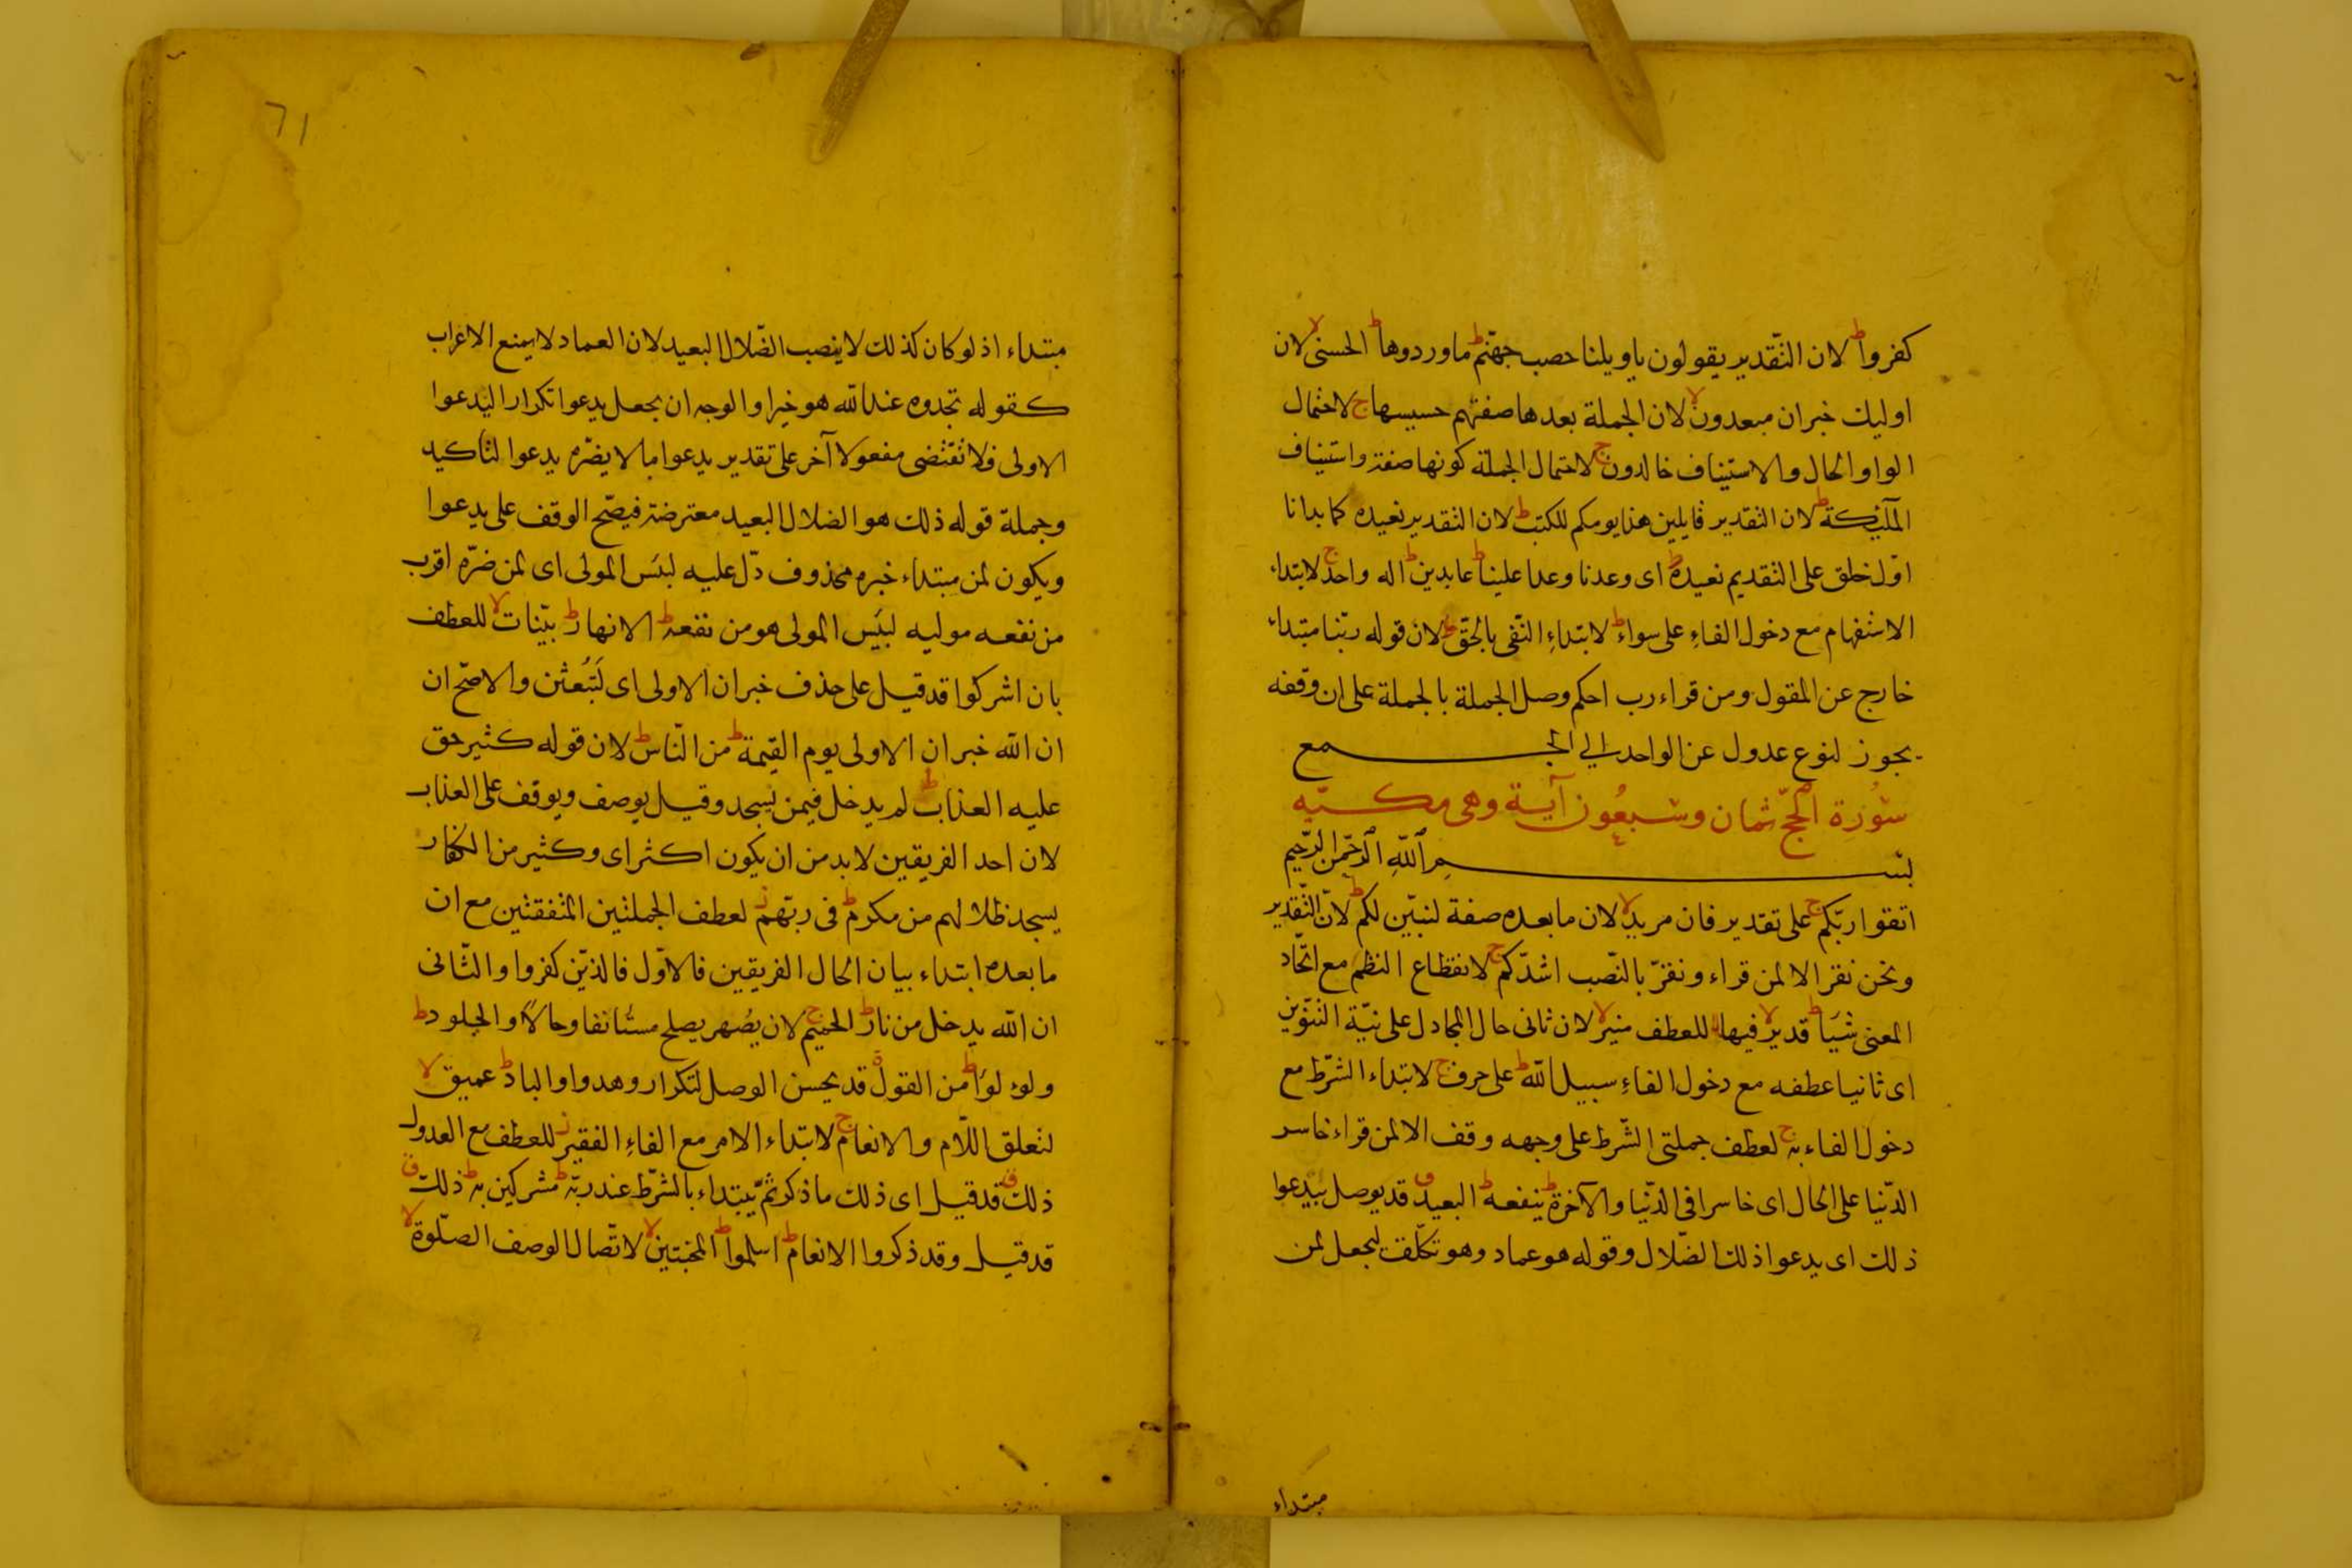 كفرواط لان التقدير يقولون ياويلنا حصب جهنمط ماوردوهاط الحسنىلا لان
اوليك خبران مبعدونلا لان الجملة بعدها صفتهم حسيسهاج لاحتمال
الواو الحال والاستيناف خالدونج لاحتمال الجملة كونها صفة واستيناف
الملٓئكةط لان التقدير قايلين هذا يومكم للكتبط لان التقدير نعيده كما بدانا
اوّل خلق على التقديم نعيدهط اى وعدنا وعدا عليناط عابدينط اله واحدج لابتداء
الاستفهام مع دخول الفاءِ على سواءط لابتداءِ النّفى بالحقّط لان قوله ربّنا مبتداء
خارج عن المقول ومن قراء رب احكم وصل الجملة بالجملة على ان وقفه
يجوز لنوع عدول عن الواحد الي الجمع
سُورة الحجّ ثمان وسبعُون آية وهى مكيّه
بسم الله الرحمن الرحيم
اتقوا ربّكمج على تقدير فان مريدلا لان مابعده صفة لنبيّن لكمط لان التّقدير
ونحن نقر الا لمن قراء ونقرّ بالنّصب اشدّكمج لانقطاع النظم مع اتّحاد
المعنى شيَاط قديرلا فيهالا للعطف منيرلا لان ثانى حال المجادل على نيّة التنوّين
اى ثانيا عطفه مع دخول الفاءِ سبيل اللهط على حرفج لابتداء الشّرط مع
دخول الفاء بهج لعطف جملتى الشّرط على وجهه وقف الا لمن قراء خاسر
الدّنيا على الحال اى خاسرا فى الدّنيا والآخرةط ينفعهط البعيدق قد يوصل بيدعوا
ذلك اى يدعوا ذلك الضّلال وقوله هو عماد وهو تكلّف ليجعل لمن
مبتداء
٦١
مبتداء اذ لو كان كذلك لاينصب الضّلال البعيد لان العماد لايمنع الاعراب
كقوله تجدوه عند الله هو خيرا والوجه ان يجعل يدعوا تكرار اليدعوا
الاولى فلا تقتضى مفعولا آخر على تقدير يدعوا مالا يضرّه يدعوا لتاكيد
وجملة قوله ذلك هو الضلال البعيد معترضة فيصّح الوقف على يدعوا
ويكون لمن مبتداء خبره محذوف دلّ عليه لبئس المولى اى لمن ضرّه اقرب
من نفعه موليه لبئس المولى هو من نفعهط الانهارط بيّناتلا للعطف
بان اشركوا قد قيل على حذف خبران الاولى اى لَتُبْعَثن والاصحّ ان
ان الله خبران الاولى يوم القيمةط من النّاسط لان قوله كثير حق
عليه العذابط لم يدخل فيمن يسجد وقيل يوصف ويوقف على العذاب
لان احد الفريقين لابد من ان يكون اكثر اى وكثير من الكفار
يسجد ظلالهم من مكرمط فى ربّهمز لعطف الجملتين المتفقتين مع ان
مابعده ابتداء بيان الحال الفريقين فالاوّل فالذيّن كفروا والثّانى
ان الله يدخل من نارط الحميمج لان يصُهر يصلح مستانفا وحالاً والجلودط
ولؤلؤاط من القولق قد يحسن الوصل لتكرار وهدوا والبادط عميقلا
لتعلق اللّام والانعامج لابتداء الامر مع الفاءِ الفقيرز للعطف مع العدول
ذلكق قد قيل اى ذلك ما ذكر ثمّ يبتداء بالشّرط عند ربّهط مشركين بهط ذلكق
قد قيل وقد ذكروا الانعامط اسلمواط المخبتينلا لاتّصال الوصف الصّلوةلا